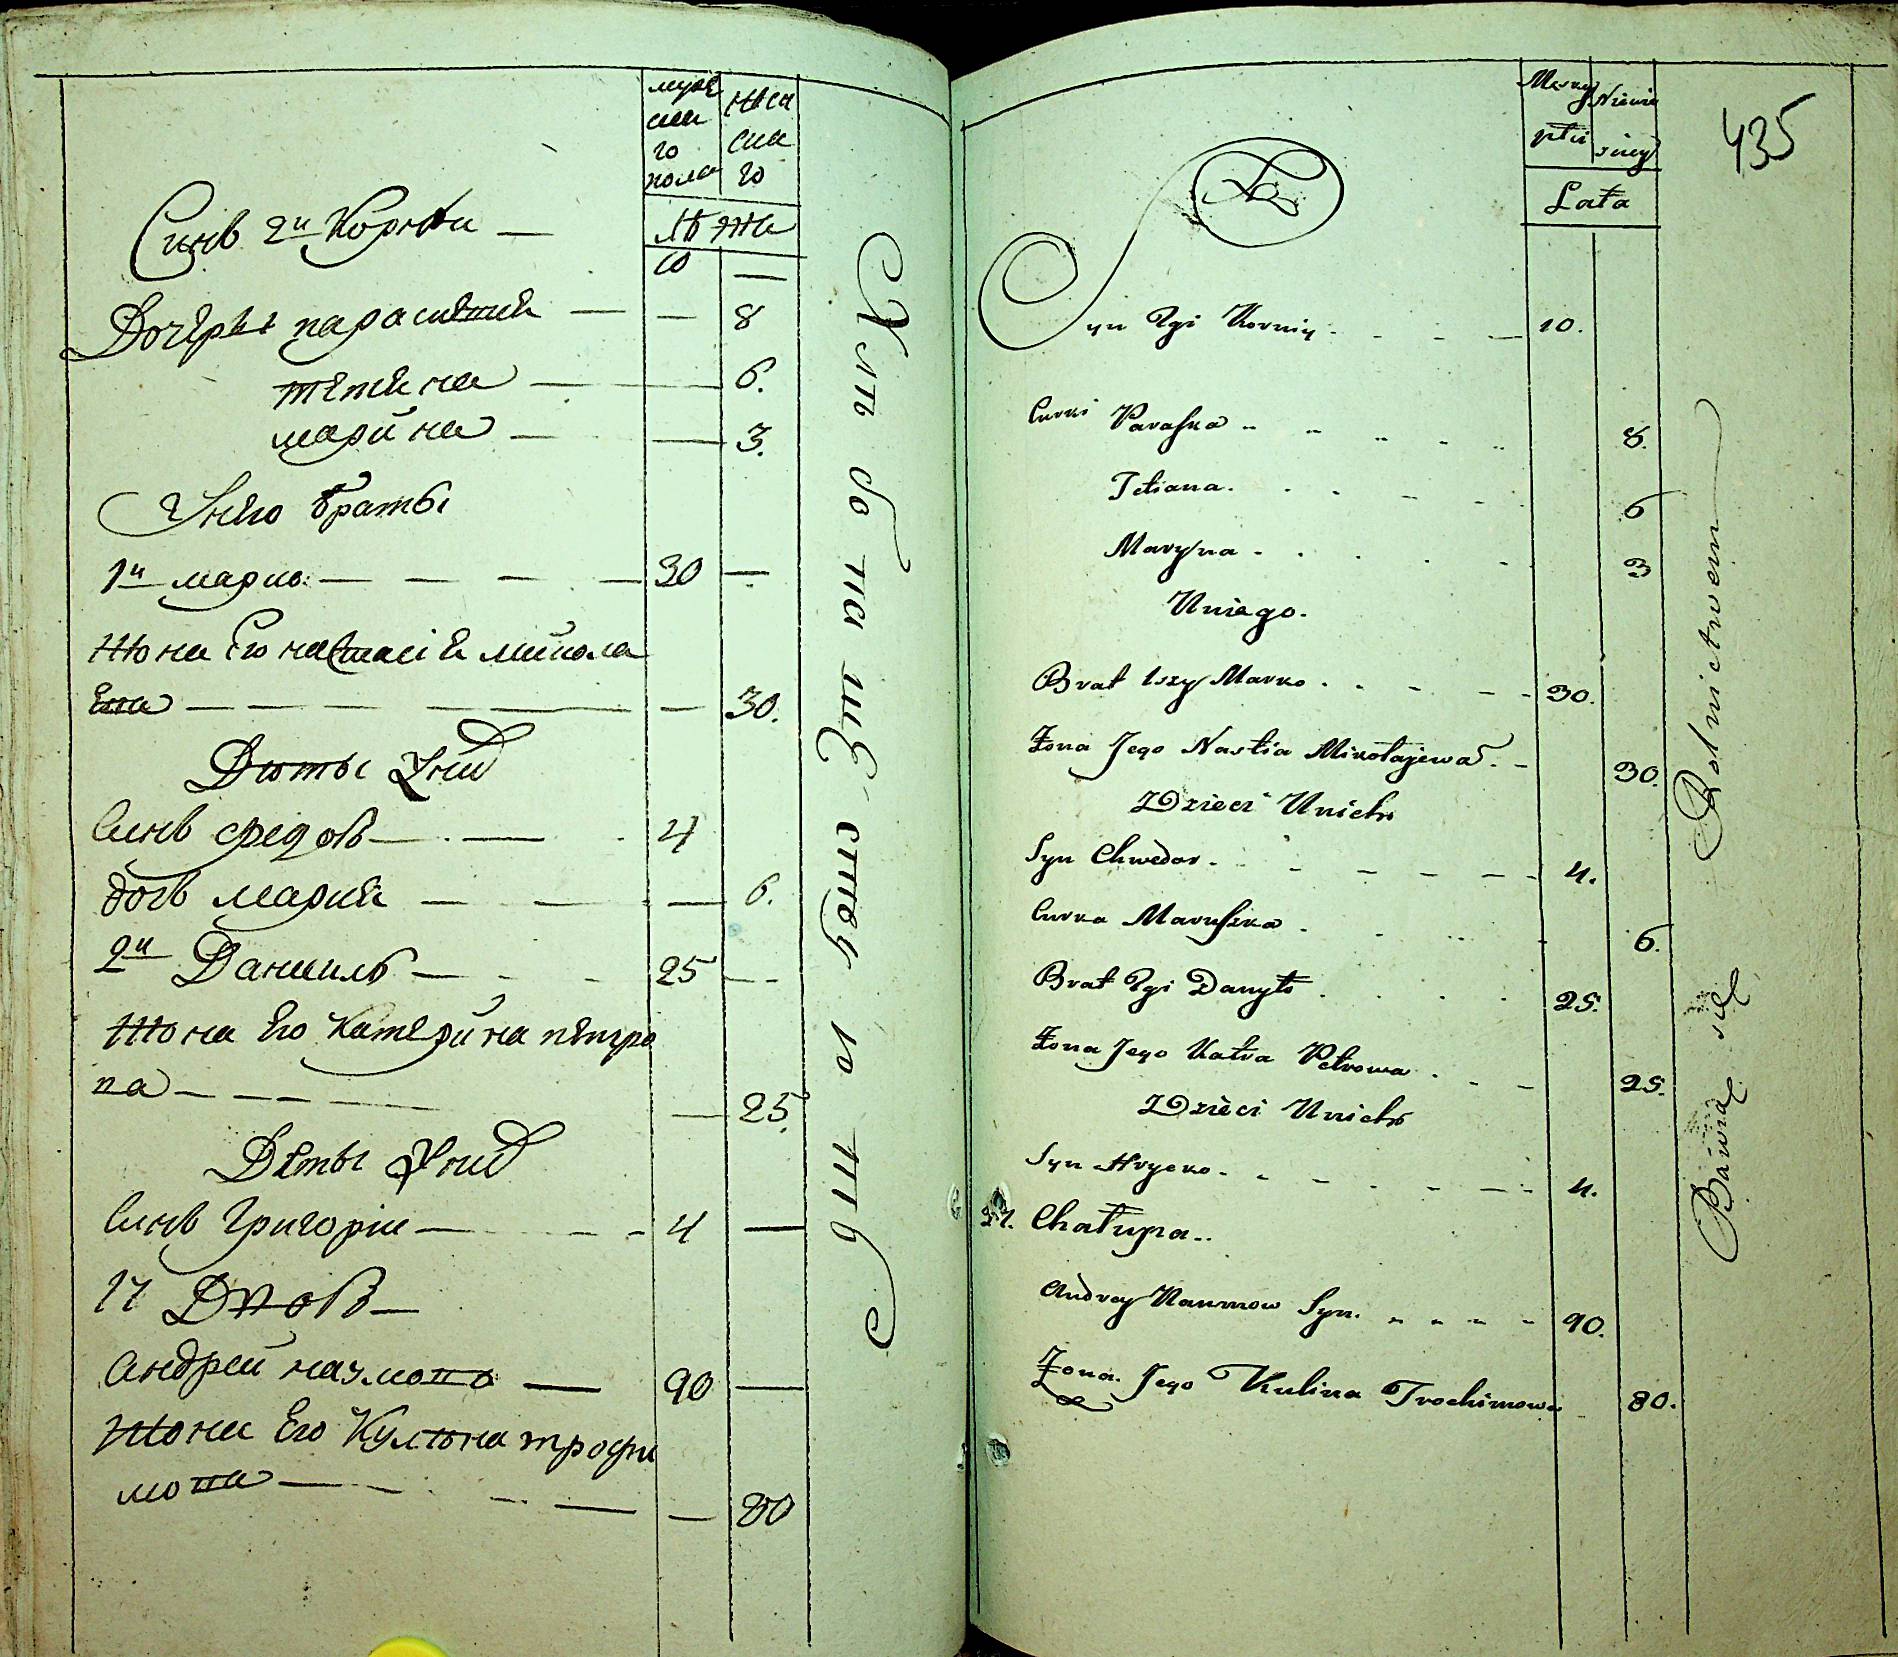 муже
ска
го
пола
женска
го
Лѣта
Синъ 2й Корнѣй — 10 —
Дочеры параскевия — — 8
тетяна — — 6.
марина — — 3.
У него браты
1й марко — 30 —
Жона Его настасія микола
ева — — 30.
Дѣты У них
Синъ Федоръ — 4
дочъ мария — — 6.
2й Даниилъ — 25 —
Жона Его Катерина петро
ва — — 25.
Дѣты У них
Синъ Григорій — 4 —
17 Дворъ —
Андрей наумовъ — 90 —
Жона Его Кулина трофи
мова — — 80
Męzkiey
płci
Niewie
sciey
Lata
435
Syn 2gi Korniy . . . 10.
Curki Paraska . . . 8.
Tetiana . . . 6
Maryna . . . 3
U niego.
Brat 1szy Marko . . . 30.
Żona Jego Nastia Mikołajewa . 30.
Dzieci U nich
Syn Chwedor . . . 4.
Curka Maruszka . . . 6.
Brat 2gi Danyło . . . 25.
Żona Jego Katra Petrowa . . . 25.
Dzieci U nich
Syn Hryćko . . . 4.
17. Chałupa..
Andrey Naumow Syn . . . 90.
Żona Jego Kulina Trochimowa 80.
Bawią się Rolnictwem